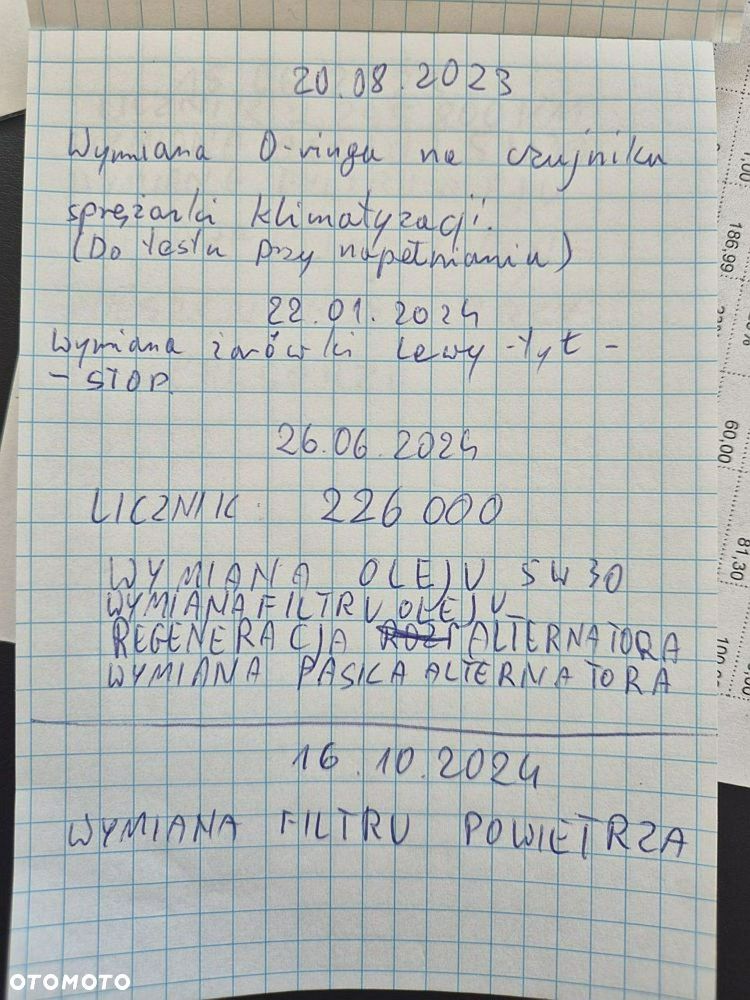 20.08.2023
Wymiana O-ringu na czujniku
sprężarki klimatyzacji.
(Do testu przy napełnianiu)
22.01.2024
Wymiana żarówki Lewy-tył -
- STOP.
26.06.2024
LICZNIK. 226 000
WYMIANA OLEJU 5W30
WYMIANA FILTRU OLEJU
REGENERACJA ALTERNATORA
WYMIANA PASKA ALTERNATORA
16.10.2024
WYMIANA FILTRU POWIETRZA
1,00
186,99
60,00
81,30
OTOMOTO